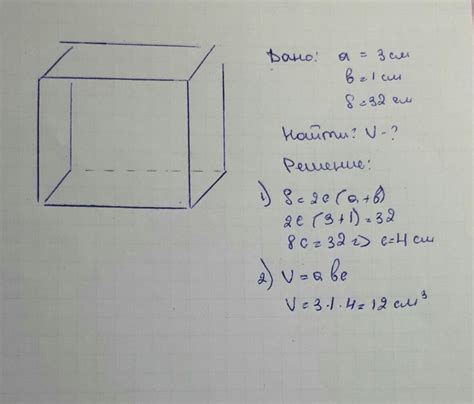 Дано: a = 3 см
в = 1 см
S = 32 см
Найти: V - ?
Решение:
1) S = 2c (a+b)
2c (3+1) = 32
8c = 32 => c = 4 см
2) V = a b c
V = 3 · 1 · 4 = 12 см³